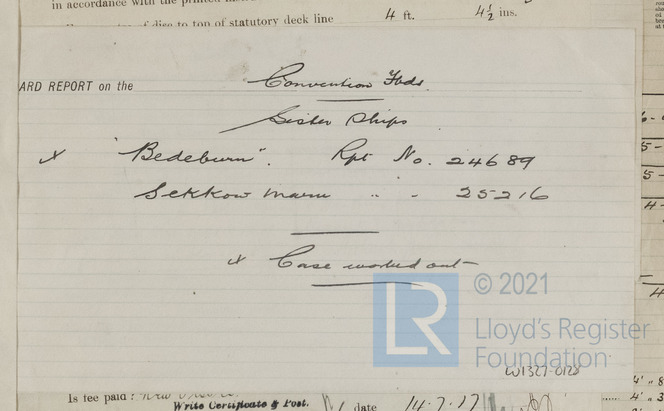 in accordance with the printed
of disc to top of statutory deck line 4 ft. 4½ ins.
ARD REPORT on the Convention Fbds.
Sister Ships
x "Bedeburn". Rpt No. 24689
Sekkow Maru " " 25216
x Case worked out
LR © 2021
Lloyd's Register
Foundation
LW1327-0128
Is fee paid?
Write Certificate & Post. date 14.7.17